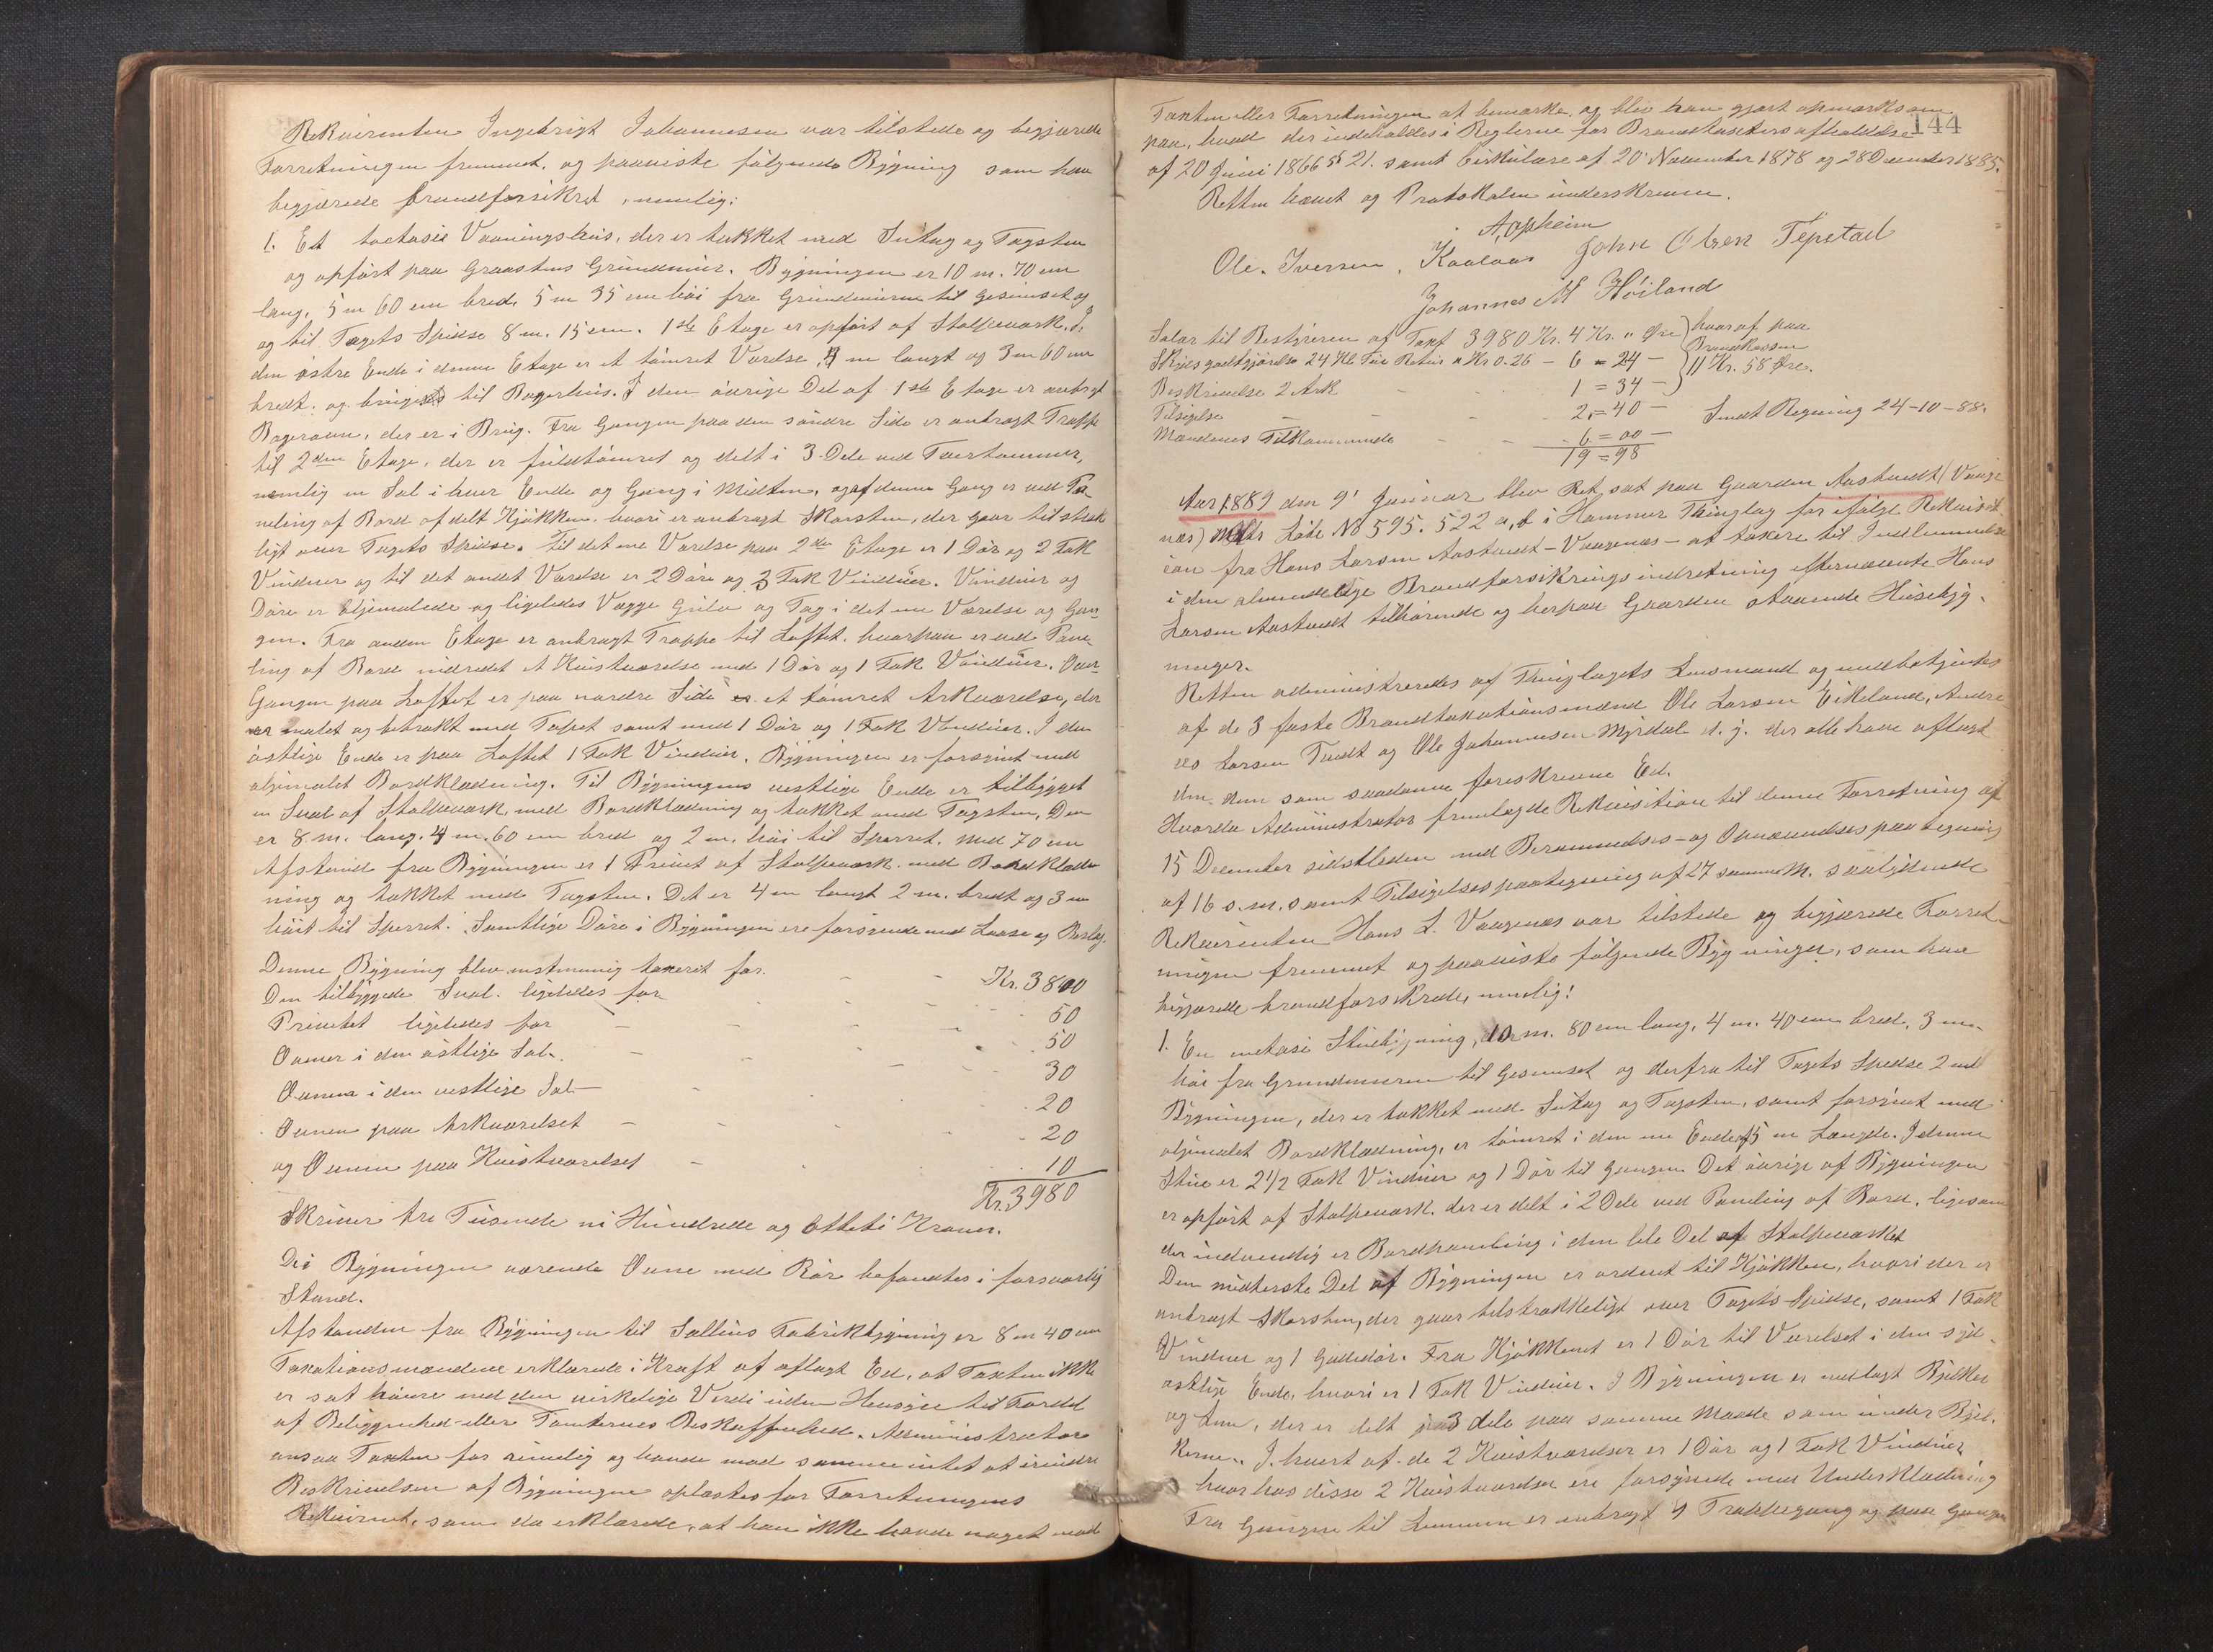 Rekvirenten Ingebrigt Johannesen var tilstede og begjærede
Forretningen fremmet, og paaviste følgende Bygning som han
begjærede brandforsikret, nemlig:
1. Et toetasis Vaaningshus, der er tækket med Sutag og Tagsten
og opført paa Graastens Grundmur. Bygningen er 10 m. 70 cm
lang, 5 m 60 cm bred, 5 m 35 cm høi fra Grundmuren til Gesimset og
og til Tagets Spidse 8 m. 15 cm. 1ste Etage er opført af Stolpeværk. I
den østre Ende i denne Etage er et tømret Værelse, 4 m langt og 3 m 60 cm
bredt og bruges til Bagerhus. I den øvrige Del af 1ste Etage er anbragt
Bagerovn, der er i Brug. Fra Gangen paa den søndre Side er anbragt Trappe
til 2den Etage, der er fuldtømret og delt i 3 Dele ved Tvertømmer,
nemlig en Sal i hver Ende og Gang i Midten, og af denne Gang er ved Pa-
neling af Bord afdelt Kjøkken, hvori er anbragt Skorsten, der gaar tilstræk
ligt over Tagets Spidse. Til det ene Værelse paa 2den Etage er 1 Dør og 2 Fak
Vinduer og til det andet Værelse er 2 Døre og 3 Fak Vinduer. Vinduer og
Døre er oljemalede og ligeledes Vægge Gulv og Tag i det ene Værelse og Gan-
gen. Fra anden Etage er anbragt Trappe til Loftet, hvorpaa er ved Pane-
ling af Bord indredet et Kvistværelse med 1 Dør og 1 Fak Vinduer. Over
Gangen paa Loftet er paa nordre Side et tømret Arkværelse, der
er malet og betrukt med Tapet samt med 1 Dør og 1 Fak Vinduer. I den
østlige Ende er paa Loftet 1 Fak Vinduer. Bygningen er forsynet med
oljemalet Bordklædning. Til Bygningens vestlige Ende er tilbygget
en Sval af Stolpeværk med Bordklædning og tækket med Tagsten. Den
er 8 m. lang, 4 m. 60 cm bred og 2 m. høi til Sperret. Med 70 cm
Afstand fra Bygningen er 1 Privet af Stolpeværk med Bordklæd
ning og tækket med Tagsten. Det er 4 m langt 2 m. bredt og 3 m
høit til Sperret. Samtlige Døre i Bygningen ere forsynede med Laase og Beslag.
Denne Bygning blev enstemmig taxeret for - - Kr. 3800
Den tilbyggede Sval ligeledes for - - 50
Privetet ligeledes for - - 50
Ovnen i den østlige Sal - - 30
Ovnen i den vestlige Sal - - 20
Ovnen paa Arkværelset - - 20
og Ovnen paa Kvistværelset - - 10
Kr. 3980
Skriver tre Tusende ni Hundrede og Otteti Kroner.
De i Bygningen værende Ovne med Rør befandtes i forsvarlig
Stand.
Afstanden fra Bygningen til Fabrikbygning er 8 m 40 cm
Taxationsmændene erklærede i Kraft af aflagt Ed, at Taxten ikke
er sat høiere end den virkelige Verdi uden Hensyn til Fordel
af Beliggenhed eller Tomternes Beskaffenhed. Administrator
ansaa Taxten for rimelig og havde mod samme intet at erindre
Beskrivelsen af Bygningen oplæstes for Forretningens
Rekvirent, som da erklærede, at han ikke havde noget mod
144
Taxten eller Forretningen at bemærke, og blev han gjort opmærksom
paa, hvad der indeholdes i Reglerne for Brandtaxters afholdelse
af 20 Juni 1866 § 21. samt Cirkulære af 20 November 1878 og 28 December 1885.
Retten hævet og Protokolen underskreven.
A. Opheim
Ole Iversen Kaalaas John Olsen Tepstad
Johannes M Høiland
Salær til Bestyreren af Taxt 3980 Kr. 4 Kr. " Øre hvoraf paa
Skydsgodtgjørelse 24 Kl. Tur Retur a Kr 0.26 - 6 = 24 - Brandkassen
11 Kr. 58 Øre.
Beskrivelse 2 Ark - - 1 = 34 -
Tilsigelse - - 2 = 40 - Sendt Regning 24-10-88.
Mændenes Tilkommende - - 6 = 00 -
19 = 98
Aar 1889 den 9' Januar blev Ret sat paa Gaarden Aastvedt (Vaage
næs) Mts Løbe No 595. 522 a, b i Hammer Thinglag for ifølge Rekvisit
ion fra Hans Larsen Aastvedt - Vaagenæs - at taxere til Indlemmelse
i den almindelige Brandforsikringsindretning efternævnte Hans
Larsen Aastvedt tilhørende og herpaa Gaarden staaende Husebyg-
ninger.
Retten administreredes af Thinglagets Lensmand og medbetjentes
af de 3 faste Brandtaxationsmænd Ole Larsen Eikeland, Andre
as Larsen Tvedt og Ole Johannesen Myrdal d. y. der alle have aflagt
den dem som saadanne foreskrevne Ed.
Hvorda Administrator fremlagde Rekvisition til denne Forretning af
15 December sidstleden med Berammelses- og Opnævnelsespaategning
af 16 s. m. samt Tilsigelsespaategning af 27 samme M. saalydende
Rekvirenten Hans L. Vaagenæs var tilstede og begjærede Forret-
ningen fremmet og paaviste følgende Bygninger, som han
begjærede brandforsikrede, nemlig:
1. En enetasi Stuebygning, 10 m. 80 cm lang, 4 m. 40 cm bred, 3 m.
høi fra Grundmuren til Gesimset og derfra til Tagets Spidse 2 m
Bygningen, der er tækket med Sutag og Tagsten, samt forsynet med
oljemalet Bordklædning, er tømret i den ene Ende af 5 m Længde. I denne
Stue er 2 1/2 Fak Vinduer og 1 Dør til Gangen. Det øvrige af Bygningen
er opført af Stolpeværk, der er delt i 2 Dele ved Paneling af Bord, ligesom
der indvendig er Bordpaneling i den hele Del af Stolpeværket
Den midterste Del af Bygningen er ordnet til Kjøkken, hvori der er
anbragt Skorsten, der gaar tilstrækkeligt over Tagets Spidse, samt 1 Fak
Vinduer og 1 Gadedør. Fra Kjøkkenet er 1 Dør til Værelset i den syd-
østlige Ende, hvori er 1 Fak Vinduer. I Bygningen er nedlagt Bjelker
og Lem, der er delt i 3 dele paa samme Maade som under Bjel-
kerne. I hvert af de 2 Kvistværelser er 1 Dør og 1 Fak Vinduer
hvorhos disse 2 Kvistværelser ere forsynede med Underklædning
Fra Gangen til Lemmen er anbragt Trappegang og paa Gangen